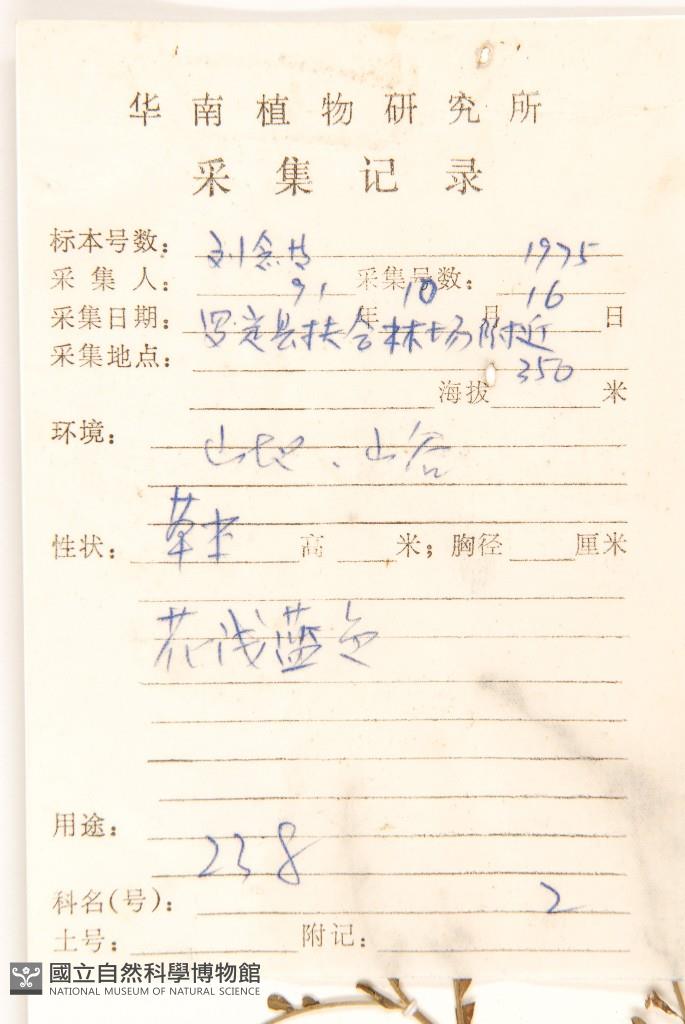 华南植物研究所
采集记录
标本号数：
采集人：刘念 采集号数：1975
采集日期：91年10月16日
采集地点：罗定县扶合林场附近
海拔350米
环境：
山地、山谷
性状：草本 高 米；胸径 厘米
花浅蓝色
用途：
238
科名(号)：
2
土号： 附记：
國立自然科學博物館
NATIONAL MUSEUM OF NATURAL SCIENCE